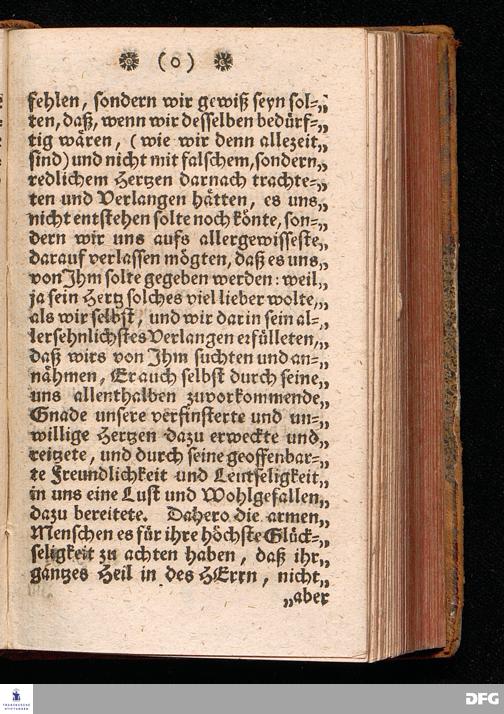 ❋ (o) ❋
fehlen, sondern wir gewiß seyn sol=„
ten, daß, wenn wir desselben bedürf=„
tig wären, (wie wir denn allezeit„
sind) und nicht mit falschem, sondern„
redlichem Hertzen darnach trachte=„
ten und Verlangen hätten, es uns„
nicht entstehen solte noch könte, son=„
dern wir uns aufs allergewisseste„
darauf verlassen mögten, daß es uns„
von Ihm solte gegeben werden: weil„
ja sein Hertz solches viel lieber wolte„
als wir selbst, und wir darin sein al=„
lersehnlichstes Verlangen erfülleten,„
daß wirs von Ihm suchten und an=„
nähmen, Er auch selbst durch seine„
uns allenthalben zuvorkommende„
Gnade unsere verfinsterte und un=„
willige Hertzen dazu erweckte und„
reitzete, und durch seine geoffenbar=„
te Freundlichkeit und Leutseligkeit„
in uns eine Lust und Wohlgefallen„
dazu bereitete. Dahero die armen„
Menschen es für ihre höchste Glück=„
seligkeit zu achten haben, daß ihr„
gantzes Heil in des HErrn, nicht„
„aber
FRANCKESCHE
STIFTUNGEN
DFG